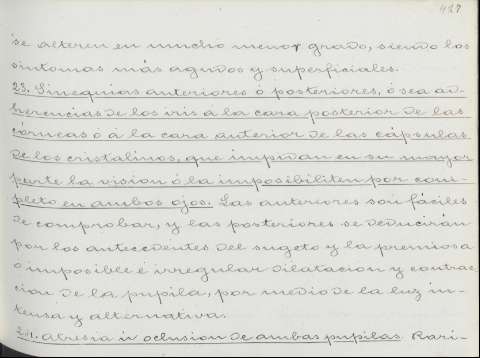 427
se alteren en mucho menor grado, siendo los
síntomas más agudos y superficiales.
23. Sinequias anteriores ó posteriores, ó sea ad-
herencias de los iris á la cara posterior de las
córneas ó á la cara anterior de las cápsulas
de los cristalinos, que impidan en su mayor
parte la vision ó la imposibiliten por com-
pleto en ambos ojos. Las anteriores son fáciles
de comprobar, y las posteriores se deducirán
por los antecedentes del sugeto y la premiosa
o imposible é irregular dilatacion y contrac-
cion de la pupila, por medio de la luz in-
tensa y alternativa.
24. Atresia ú oclusion de ambas pupilas. Rari-